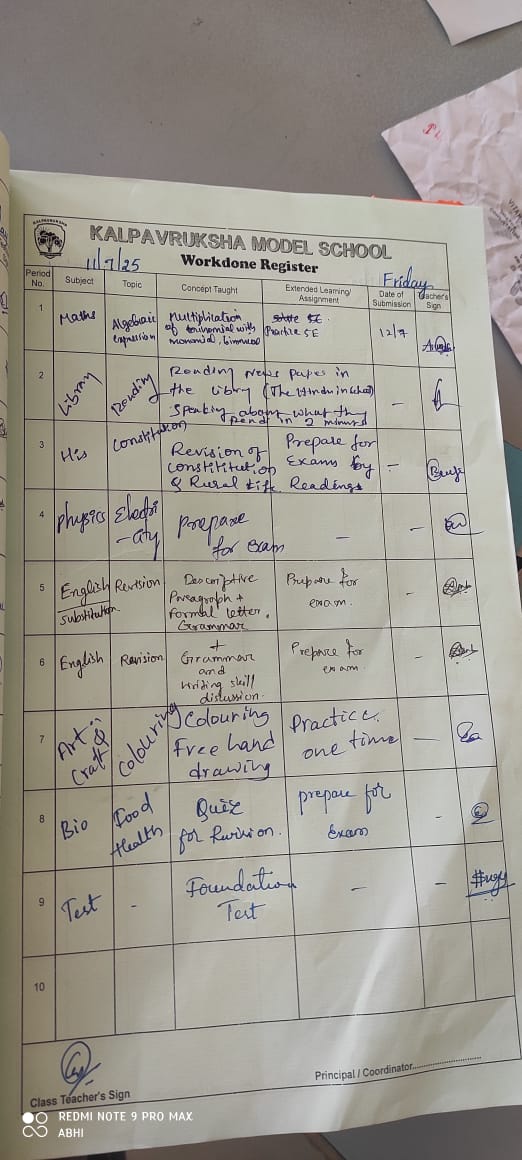 KALPAVRUKSHA MODEL SCHOOL
11/7/25 Workdone Register Friday
Period No. Subject Topic Concept Taught Extended Learning/ Assignment Date of Submission Teacher's Sign
1 Maths Algebraic expression Multiplication of trinomial with monomial, binomial Practice SE 12/7
2 Library Reading Reading News Paper in the Libry (The Hindu in School) Speaking about what they in 2 minures
3 His Constitution Revision of Constititution & Rural life. Prepare for Exams by Readings -
4 Physics Electri-city prepare for exam - -
5 English substitution. Revision Descriptive Paragraph + Formal letter, Grammar Prepare for exam. -
6 English Revision + Grammar and Writing skill distussion. Prepare for exam. -
7 Art Craft Colouring Colouring Free hand drawing Practice. one time -
8 Bio Food Health Quiz for Revision. prepare for Exam -
9 Test - Foundation Test - -
10
Class Teacher's Sign
Principal / Coordinator
REDMI NOTE 9 PRO MAX
ABHI